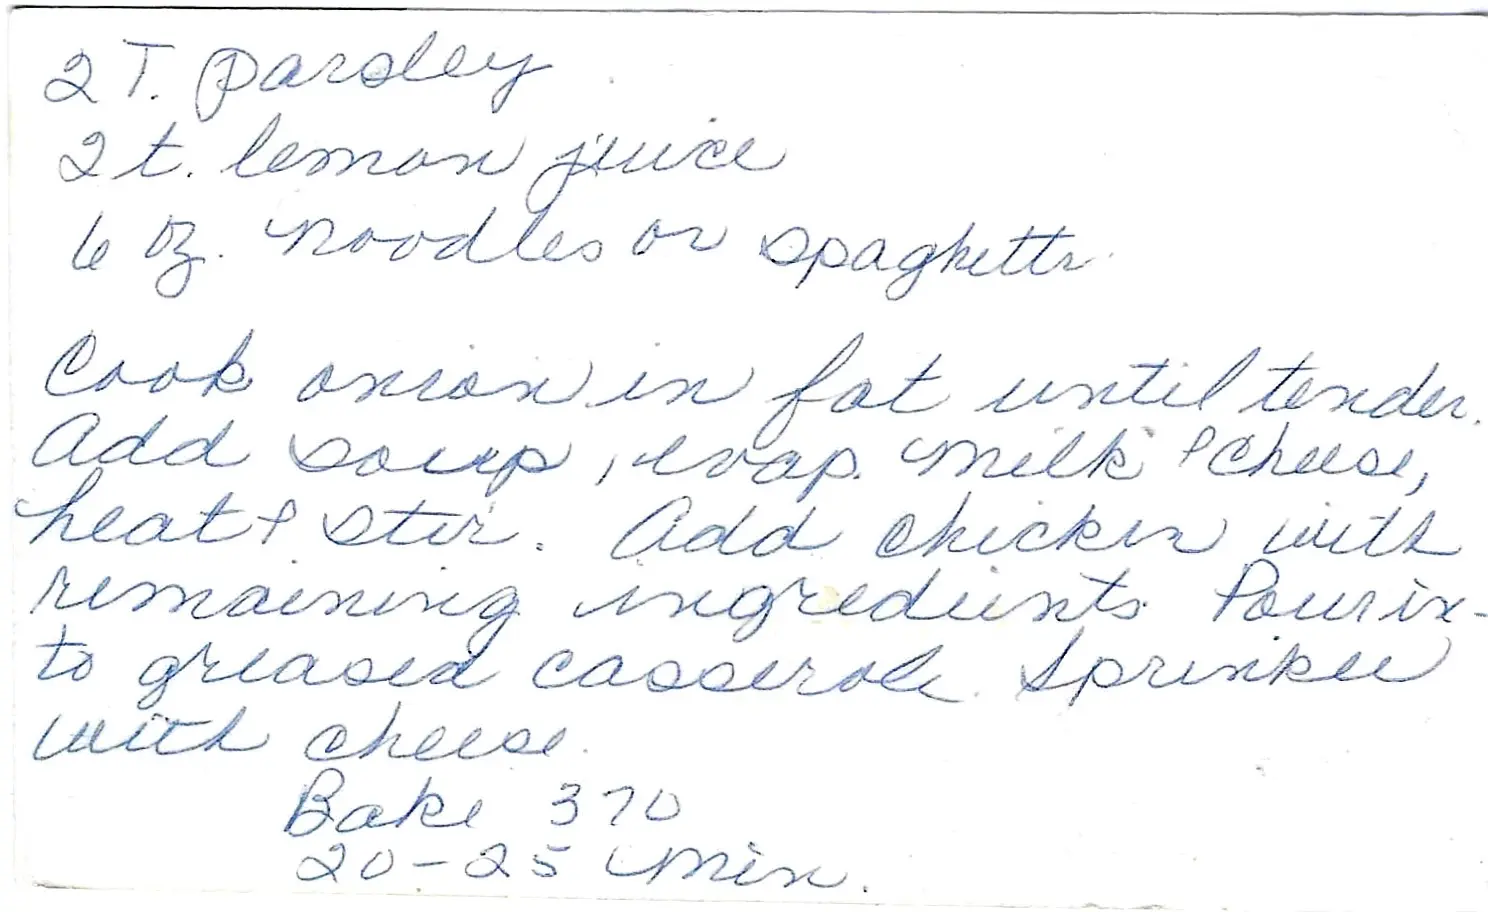 2 T. parsley
2 t. lemon juice
6 oz. noodles or spaghetti
Cook onion in fat until tender.
Add soup, evap. milk & cheese,
heat & stir. Add chicken with
remaining ingredients. Pour in-
to greased casserole. Sprinkle
with cheese.
Bake 370
20-25 min.